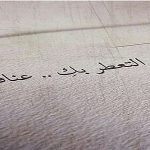 التعطر بكِ .. عناق